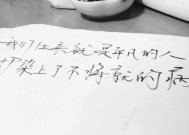 我们生来就是平凡的人
却染上了不将就的病